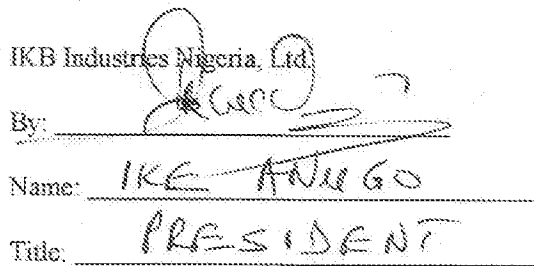 IKB Industries Nigeria, Ltd.
By:
Name: IKE ANUGO
Title: PRESIDENT